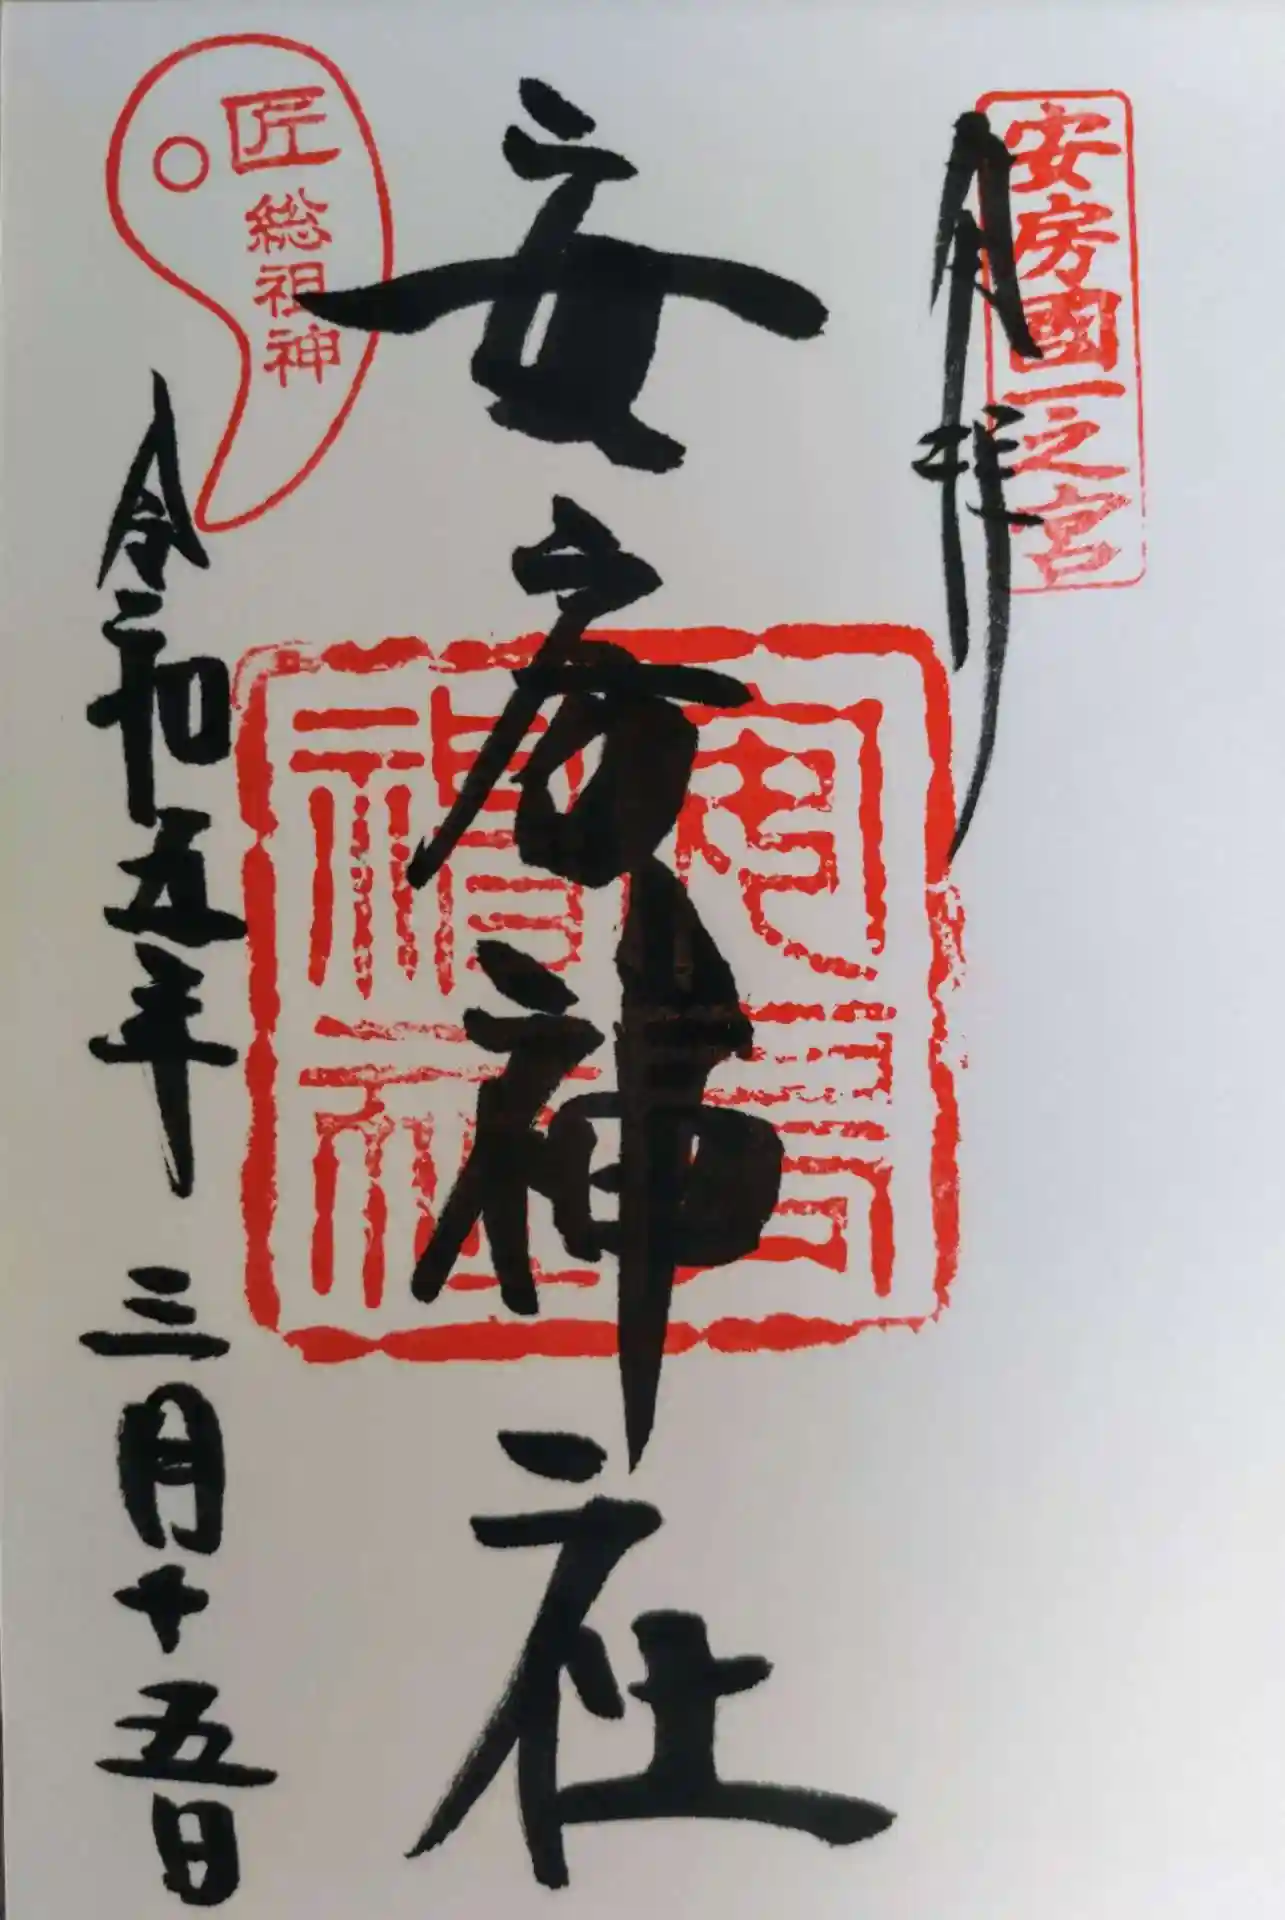 安房國一之宮
奉拝
安房神社
安房神社
匠
総祖神
令和五年三月十五日